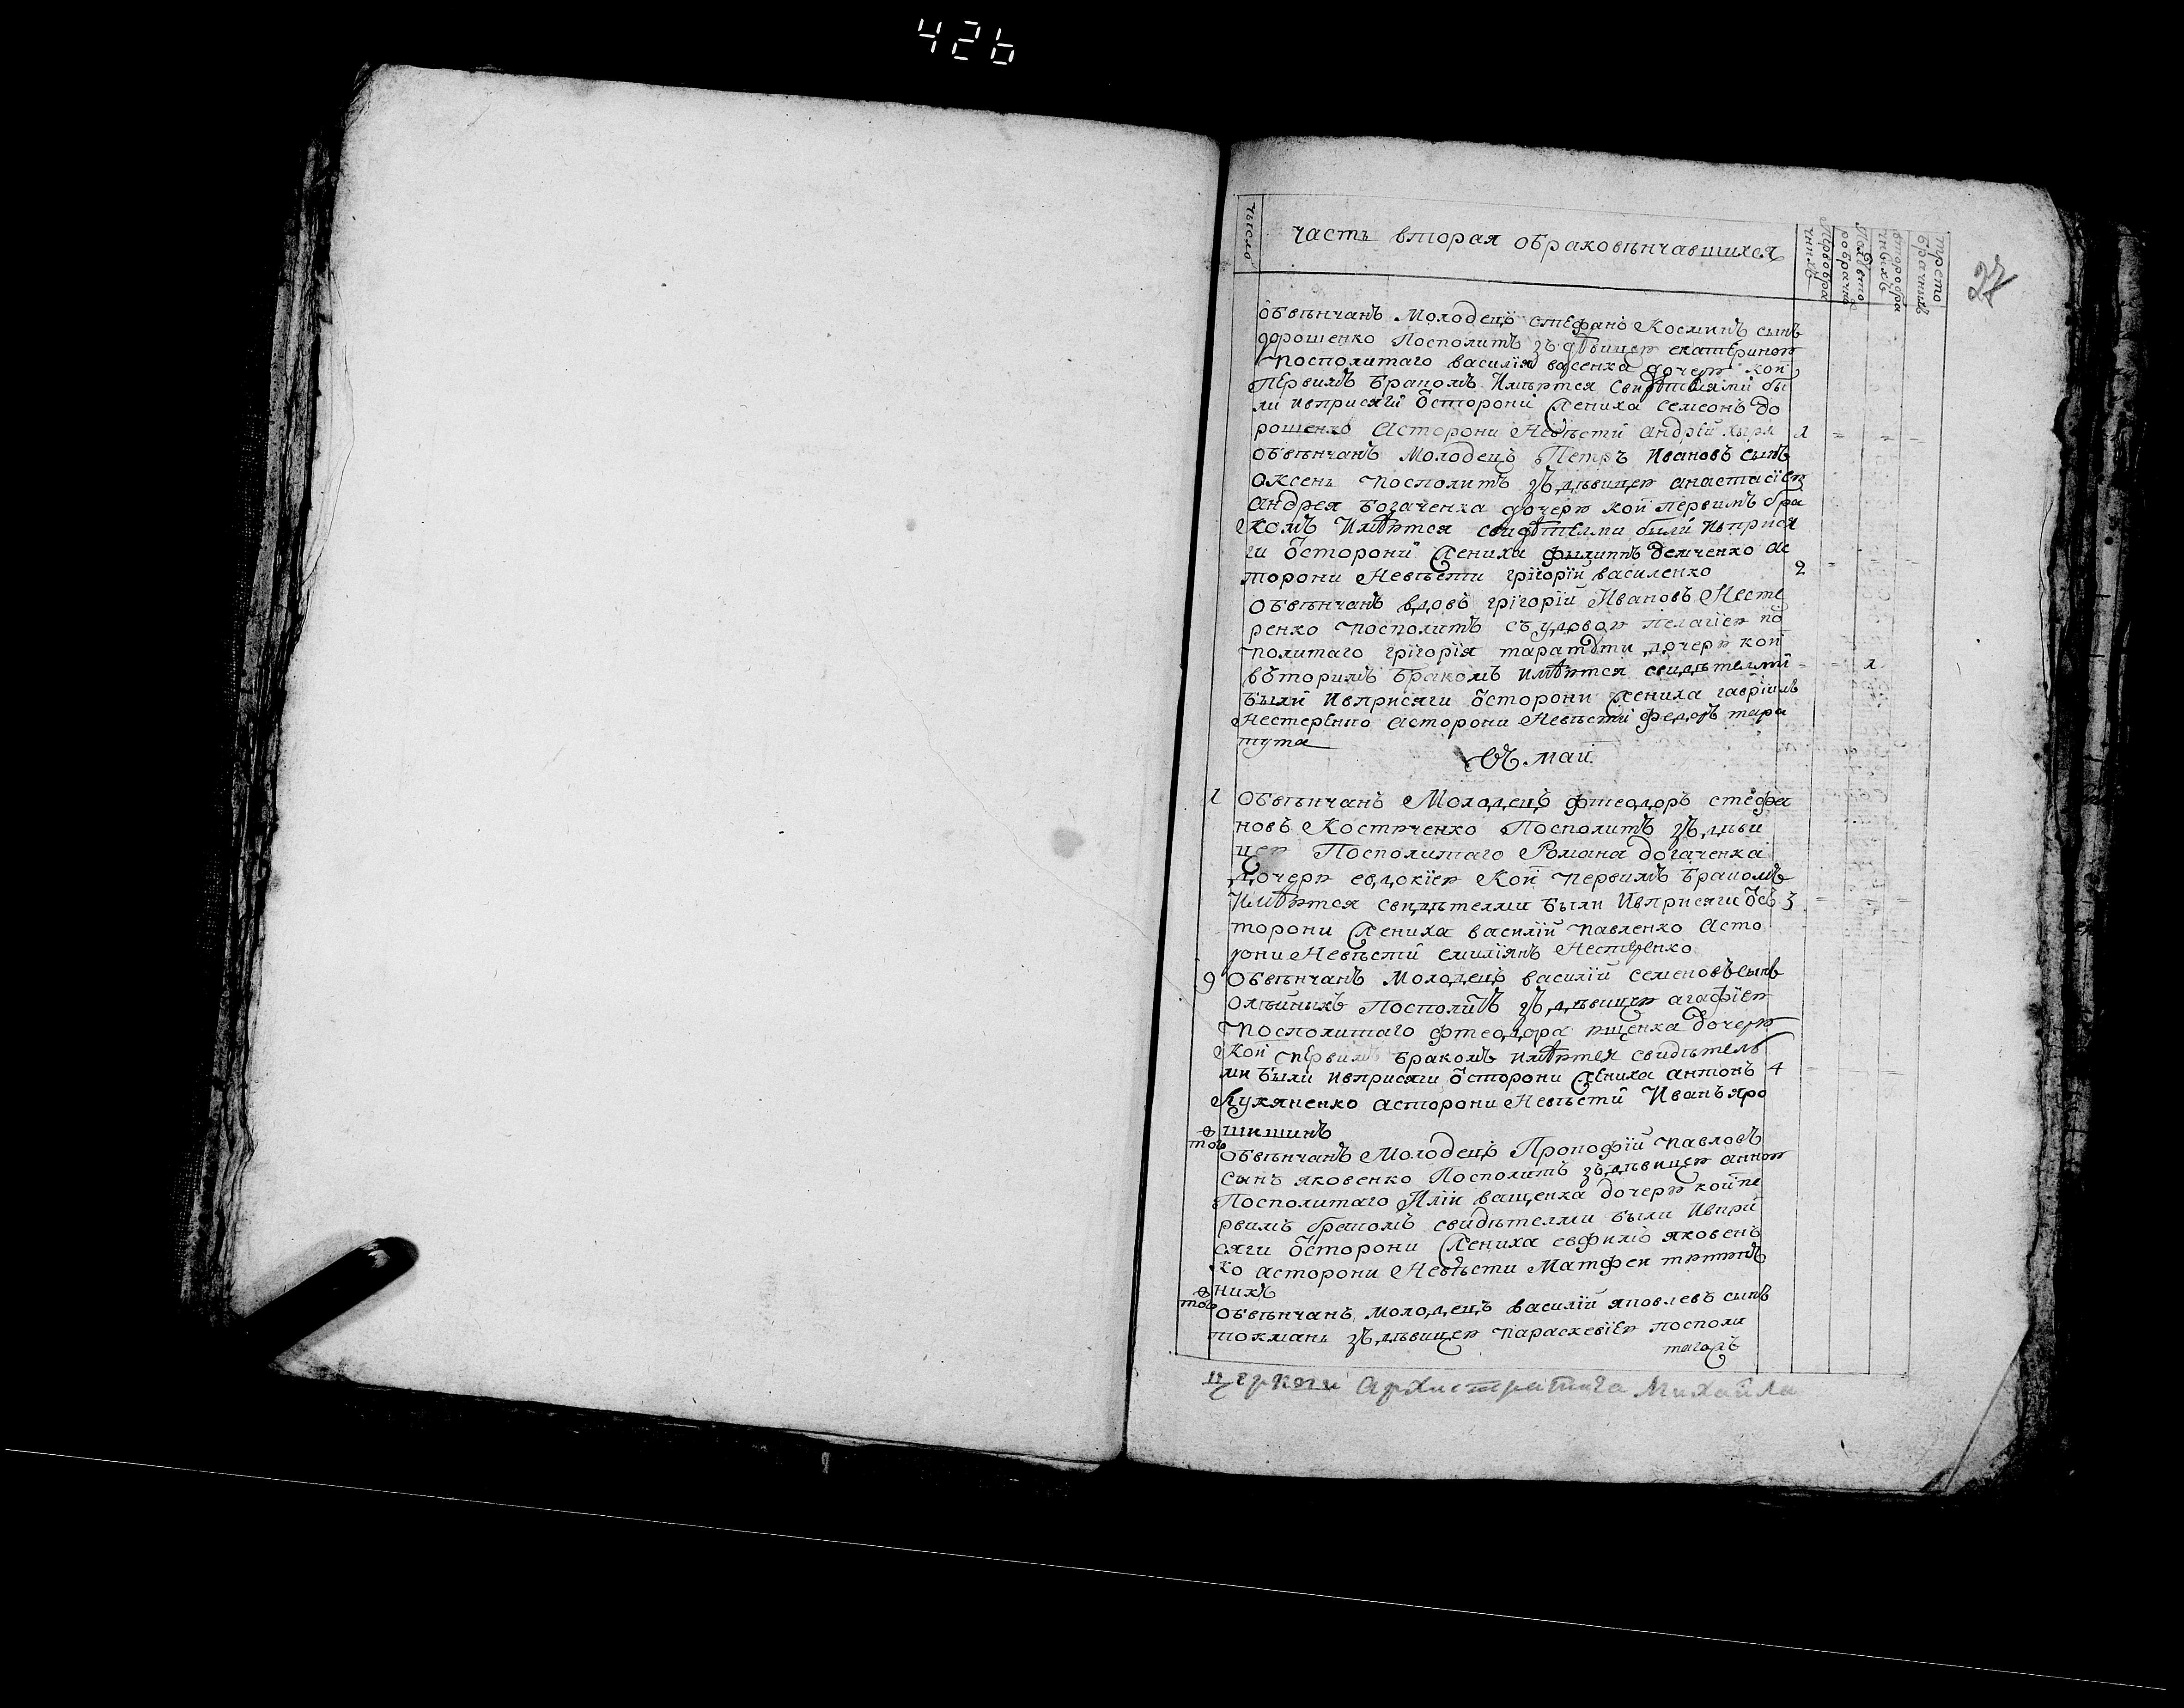 426
27
число
часть вторая обраковѣнчавшихся
первобра
чнихъ
первѣто
робрачнъ
второбра
чнихъ
трето
брачнихъ
обвѣнчанъ Молодецъ стефанъ Косминъ сынъ
дорошенко Посполитъ зъ дѣвицею екатериною
посполитаго василія васенка дочерю кои
первимъ бракомъ Имѣются свидѣтелями бы
ли ивприсяги ѿсторони жениха семеонъ до
рошенко Асторони Невѣсти андрій хыря 1
обвѣнчанъ Молодецъ Петръ Ивановъ сынъ
оксень посполитъ зъ дѣвицею анастасіею
андрея богаченка дочерю кои первимъ бра
комъ Имѣются свидѣтелми были ивприся
ги ѿсторони жениха филиппъ демченко ас
торони Невѣсти григорій василенко 2
обвѣнчанъ вдовъ григорій Ивановъ Несте
ренко посполитъ съ удовою пелагіею по
политаго григорія таратути дочерю кои
вѣторимъ бракомъ имѣются свидѣтелми 1
были ивприсяги ѿсторони жениха гавріилъ
Нестеренко асторони Невѣсти федоръ тара
тута
въ май
1 обвѣнчанъ Молодецъ фтеодоръ стефа
новъ Костюченко Посполитъ зъ дѣви
цею Посполитаго Романа богаченка
дочерю евдокіею Кои первимъ бракомъ
Имѣются свидѣтелми были Ивприсяги ѿс 3
торони жениха василій павленко асто
рони Невѣсти емиліянъ Нестеренко
9 обвѣнчанъ Молодецъ василій семеновъ сынъ
олѣйникъ Посполитъ зъ дѣвицею агафіею
посполитаго фтеодора ющенка дочерю
кои первимъ бракомъ имѣются свидѣтелъ
ми были ивприсяги ѿсторони жениха антонъ 4
Лукяненко асторони Невѣсти Иванъ яро
шишинъ
ѳ
тоъ обвѣнчанъ Молодецъ Прокофій павловъ
сынъ яковенко Посполитъ зъ дѣвицею анною
Посполитаго Иліи ващенка дочерю кои пе
рвимъ бракомъ свидѣтелми были Ивпри
сяги ѿсторони жениха евфимъ яковен
ко асторони Невѣсти Матфеи тютюн
никъ
ѳ
тоъ обвѣнчанъ молодецъ василій яковлевъ сынъ
токмань зъ дѣвицею параскевіею посполи
тагоръ
церкви Архистратига Михаила